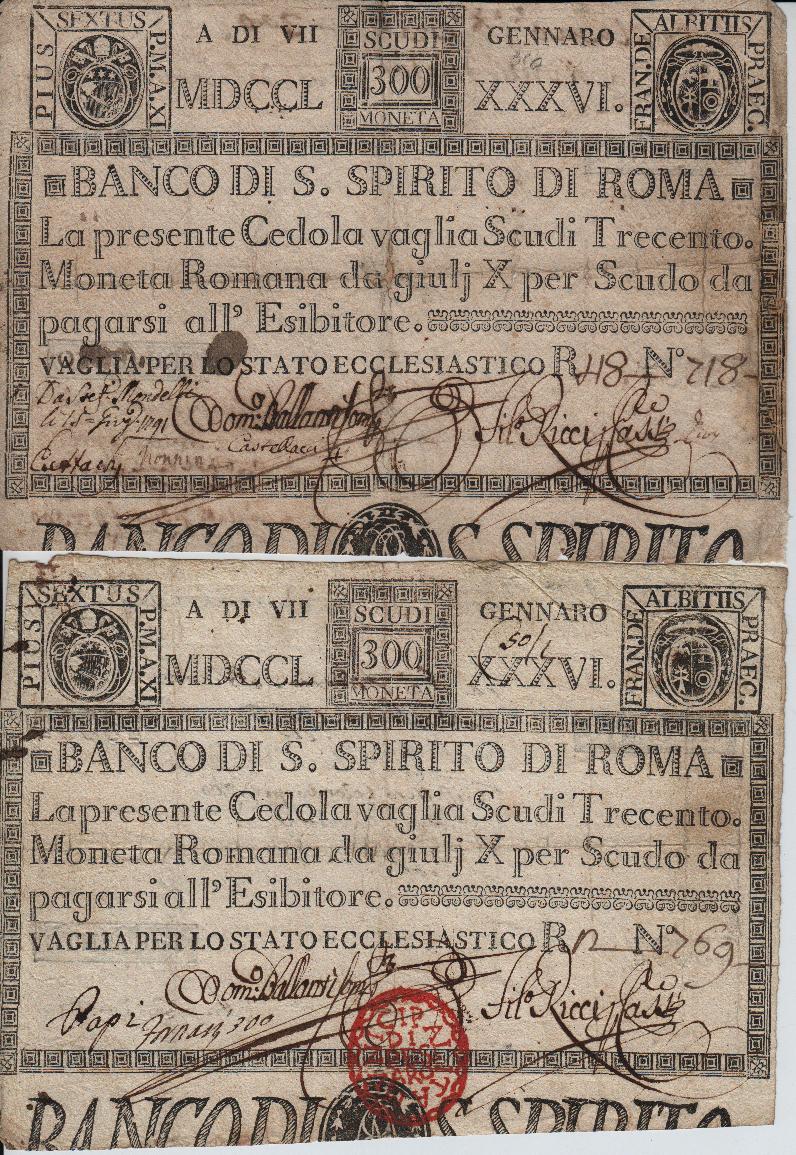 PIUS SEXTUS P.M.A.XI A DI VII SCUDI GENNARO FRAN.DE ALBITIIS PRAEC.
MDCCL 300 XXXVI.
MONETA
BANCO DI S. SPIRITO DI ROMA
La presente Cedola vaglia Scudi Trecento.
Moneta Romana da giulj X per Scudo da
pagarsi all' Esibitore.
VAGLIA PER LO STATO ECCLESIASTICO R 48 N° 718
Castellacci
BANCO DI S. SPIRITO
PIUS SEXTUS P.M.A.XI A DI VII SCUDI GENNARO FRAN.DE ALBITIIS PRAEC.
MDCCL 300 XXXVI.
MONETA
BANCO DI S. SPIRITO DI ROMA
La presente Cedola vaglia Scudi Trecento.
Moneta Romana da giulj X per Scudo da
pagarsi all' Esibitore.
VAGLIA PER LO STATO ECCLESIASTICO R 12 N° 769
Papi
300
BANCO DI S. SPIRITO